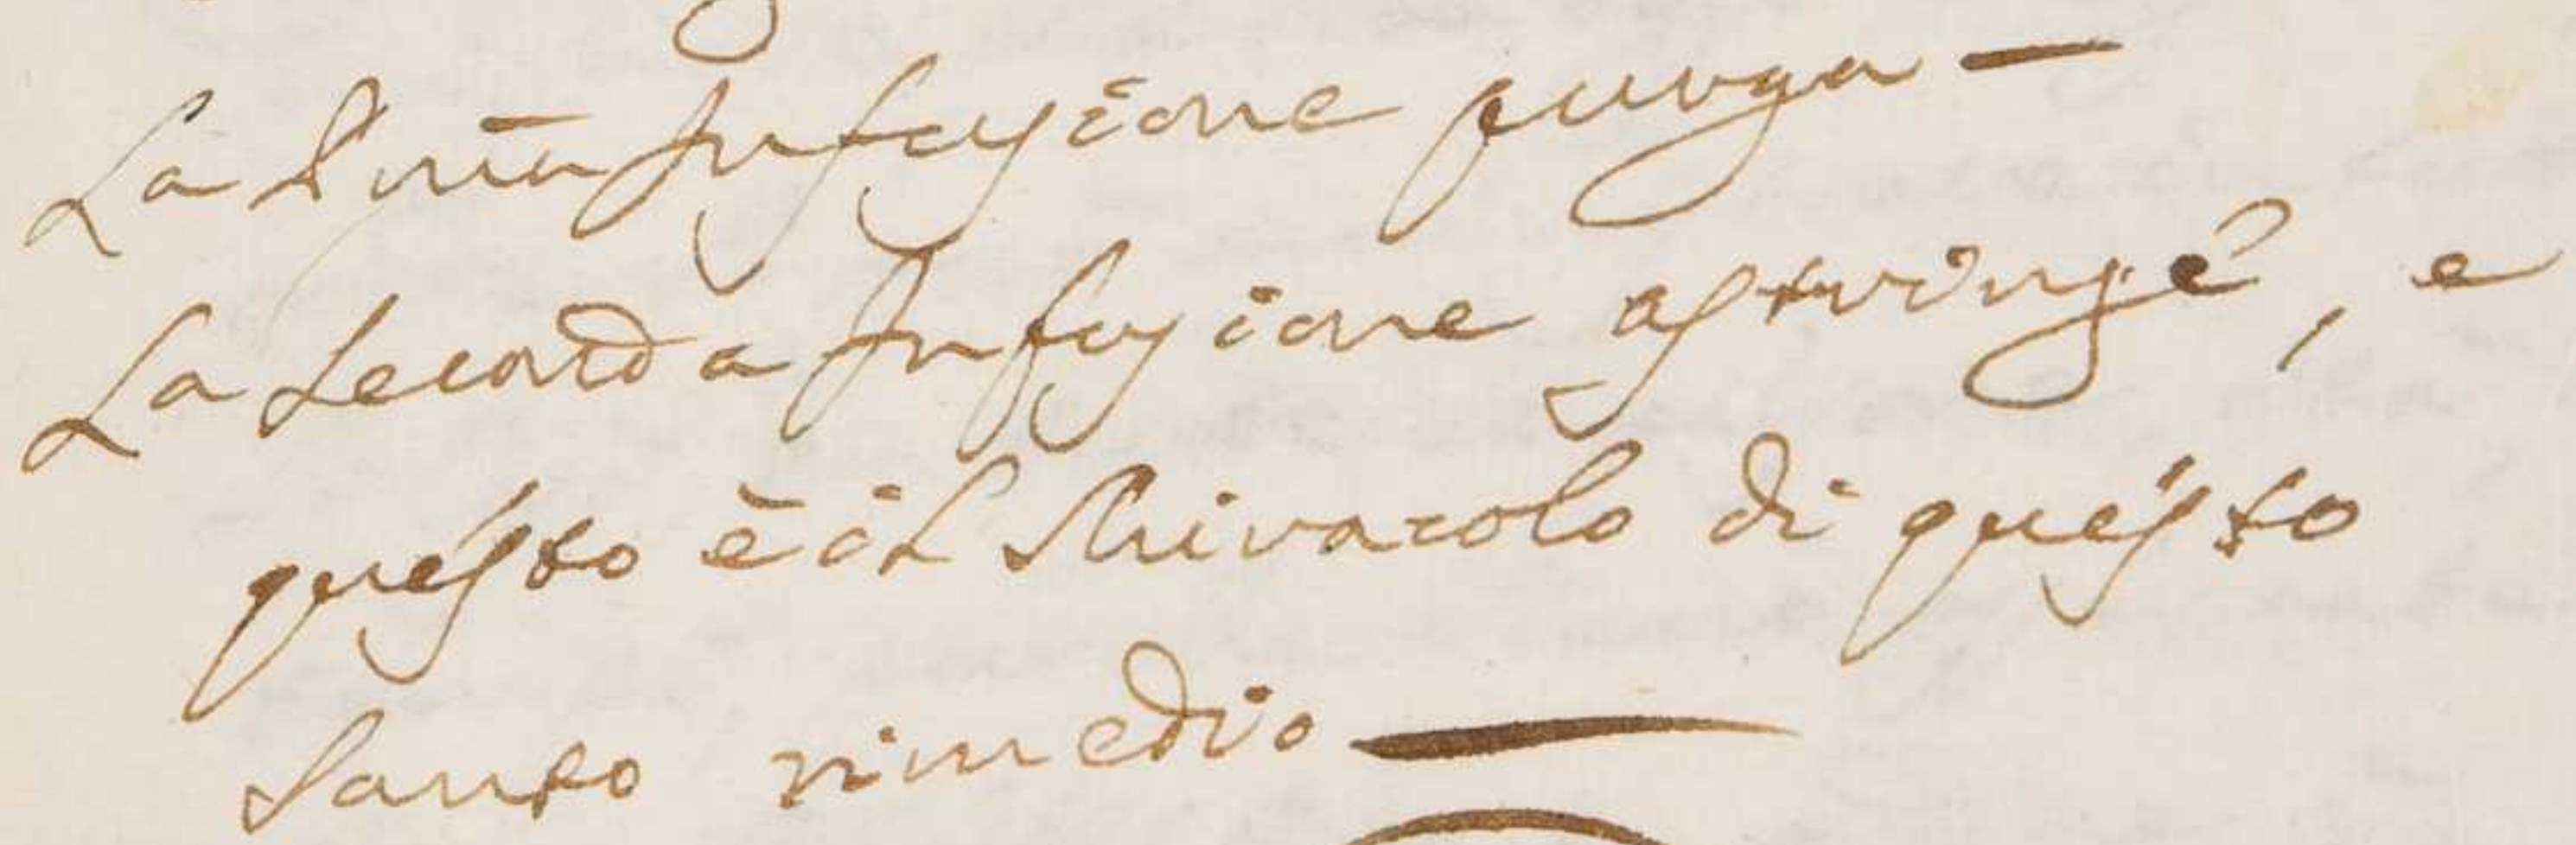 La Pm̄a Infusione purga —
La Seconda Infusione astringe, e
questo è il Miracolo di questo
Santo rimedio —